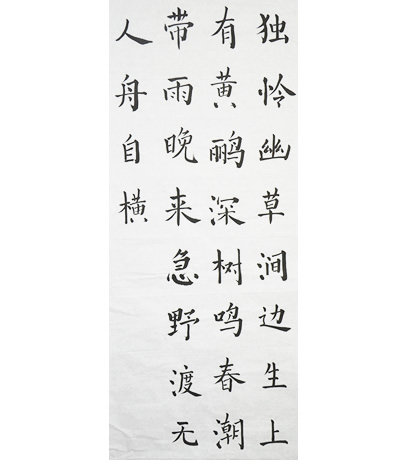 独怜幽草涧边生上
有黄鹂深树鸣春潮
带雨晚来急野渡无
人舟自横